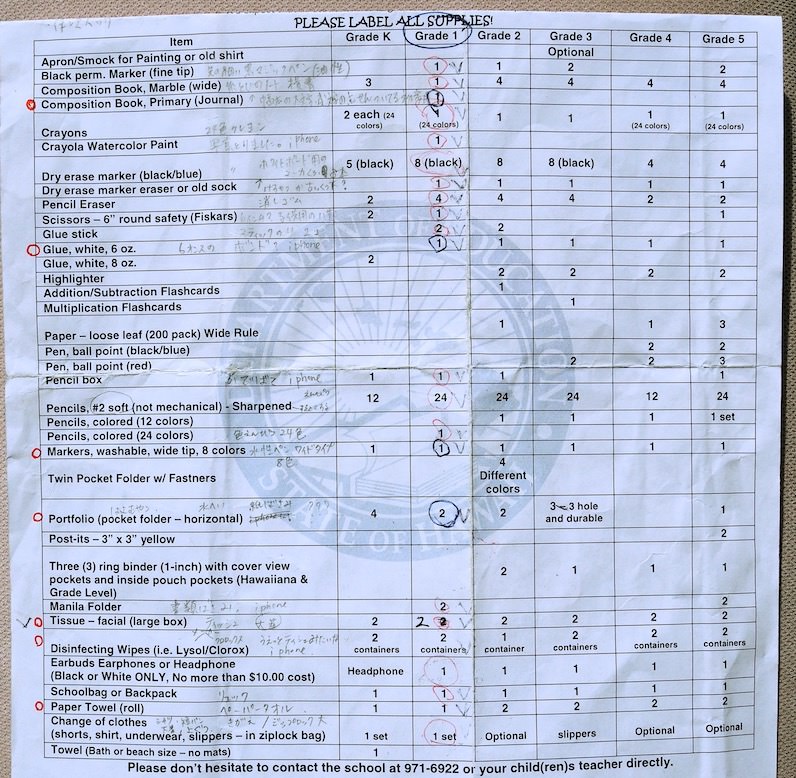 PLEASE LABEL ALL SUPPLIES!
Item Grade K Grade 1 Grade 2 Grade 3 Grade 4 Grade 5
Apron/Smock for Painting or old shirt Optional
Black perm. Marker (fine tip) 1 1 2 2
Composition Book, Marble (wide) 3 1 4 4 4 4
Composition Book, Primary (Journal) 1
Crayons 24色クレヨン 2 each (24 colors) 1 (24 colors) 1 1 1 (24 colors) 1 (24 colors)
Crayola Watercolor Paint iphone 1
Dry erase marker (black/blue) 5 (black) 8 (black) 8 8 (black) 4 4
Dry erase marker eraser or old sock 1 1 1 1 1
Pencil Eraser 消しゴム 2 4 4 4 2 2
Scissors – 6” round safety (Fiskars) 2 1 1
Glue stick スティックのり 2 2
Glue, white, 6 oz. 6オンスの ボンド iphone 1 1 1 1 1
Glue, white, 8 oz. 2
Highlighter 2 2 2 2
Addition/Subtraction Flashcards 1
Multiplication Flashcards 1
Paper – loose leaf (200 pack) Wide Rule 1 1 3
Pen, ball point (black/blue) 2 2
Pen, ball point (red) 2 2 3
Pencil box iphone 1 1 1 1
Pencils, #2 soft (not mechanical) - Sharpened 12 24 24 24 12 24
Pencils, colored (12 colors) 1 1 1 1 set
Pencils, colored (24 colors) 色えんぴつ 24色 1
Markers, washable, wide tip, 8 colors 水性ペン ワイドタイプ 8色 1 1 1 1 1 1
Twin Pocket Folder w/ Fastners 4 Different colors
Portfolio (pocket folder – horizontal) 4 2 2 3 hole and durable 1
Post-its – 3” x 3” yellow 2
Three (3) ring binder (1-inch) with cover view pockets and inside pouch pockets (Hawaiiana & Grade Level) 2 1 1 1
Manila Folder iphone 2 2
Tissue – facial (large box) ティッシュ 2 2 2 2 2 2
Disinfecting Wipes (i.e. Lysol/Clorox) クロロックス iphone 2 containers 2 containers 1 container 2 containers 2 containers 2 containers
Earbuds Earphones or Headphone (Black or White ONLY, No more than $10.00 cost) Headphone 1 1 1 1 1
Schoolbag or Backpack リュック 1 1 1 1 1 1
Paper Towel (roll) ペーパータオル 1 1 2 2 2 2
Change of clothes (shorts, shirt, underwear, slippers – in ziplock bag) 1 set 1 set Optional slippers Optional Optional
Towel (Bath or beach size – no mats) 1
Please don't hesitate to contact the school at 971-6922 or your child(ren)s teacher directly.